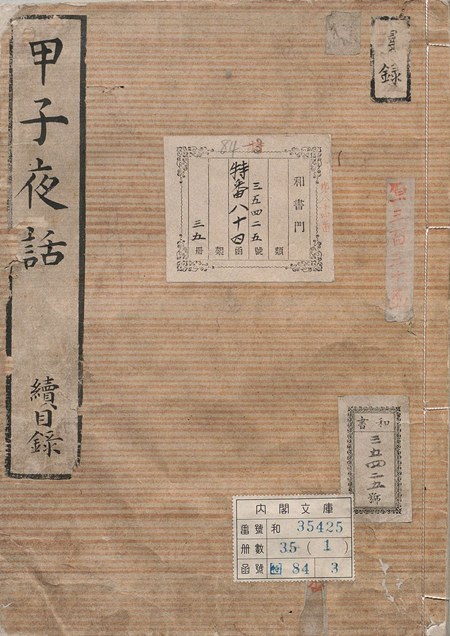 甲子夜話
續目錄
目錄
84 特
和書門
類
三五四二五號
特番八十四函
架
三五冊
和書
三五四二五號
内閣文庫
番號 和 35425
冊數 35(1)
函號 特 84 3